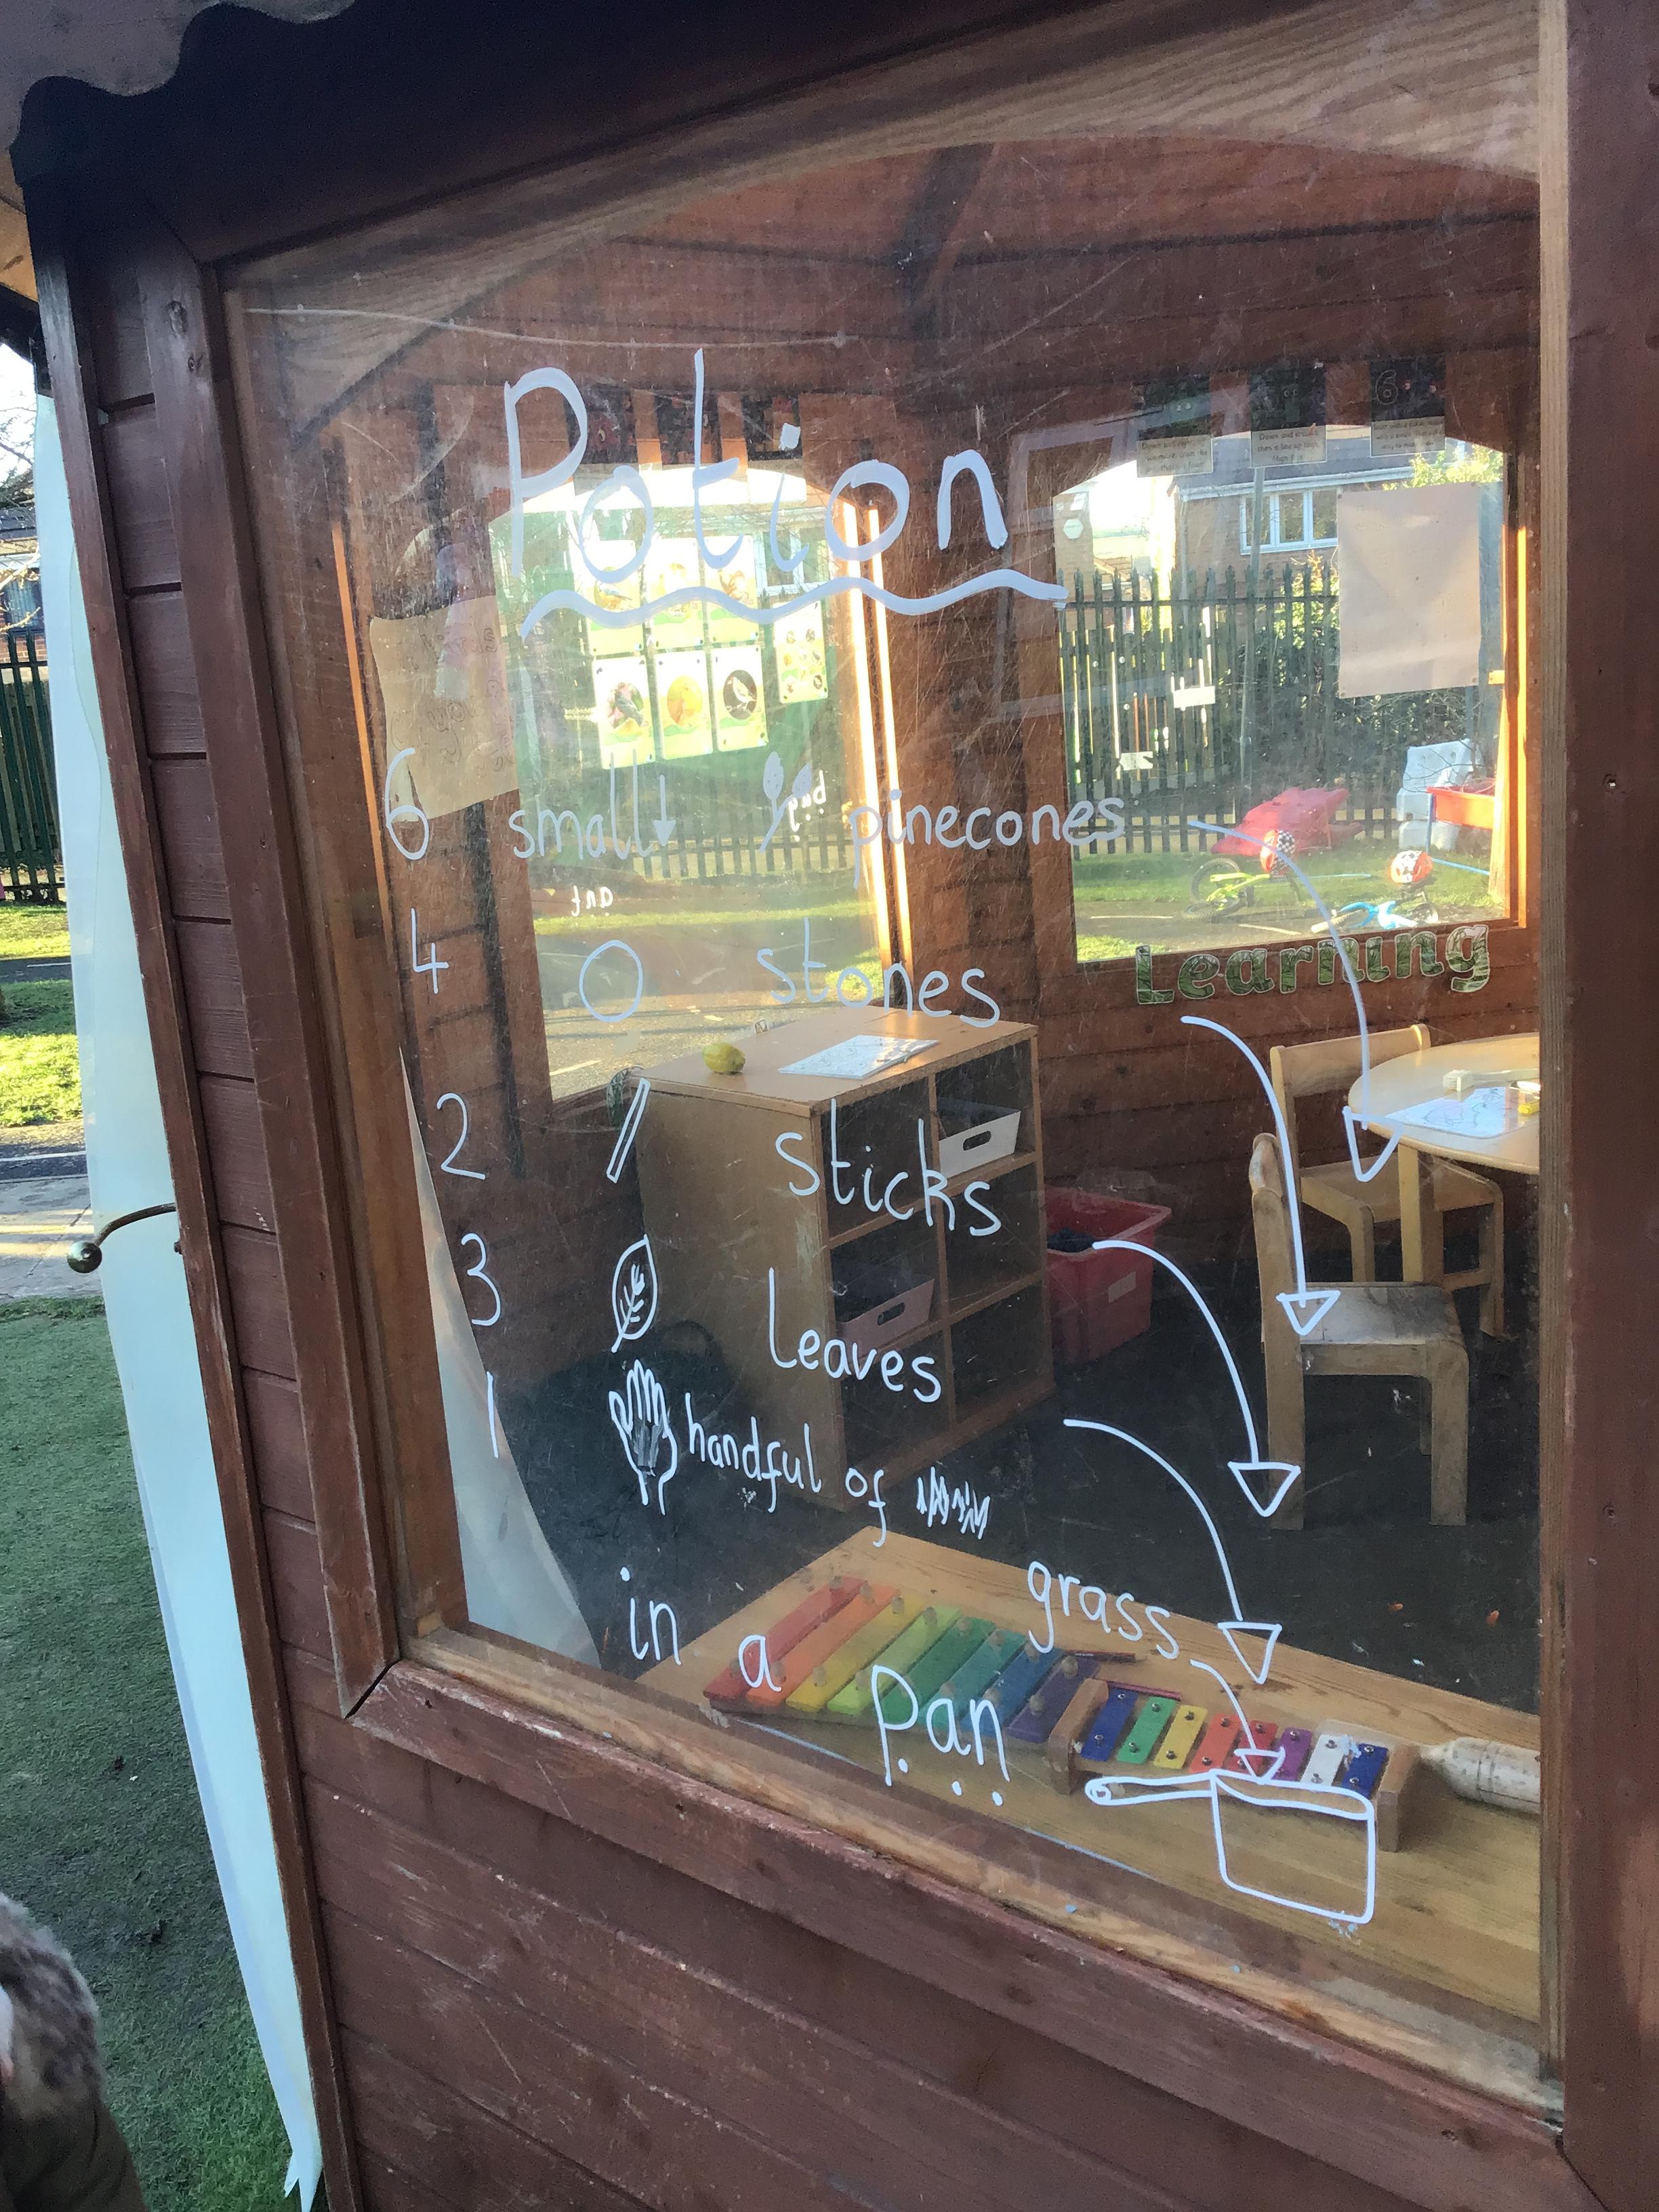 Potion
6 small pinecones
4 stones
Learning
2 sticks
3 Leaves
1 handful of
grass
in a pan